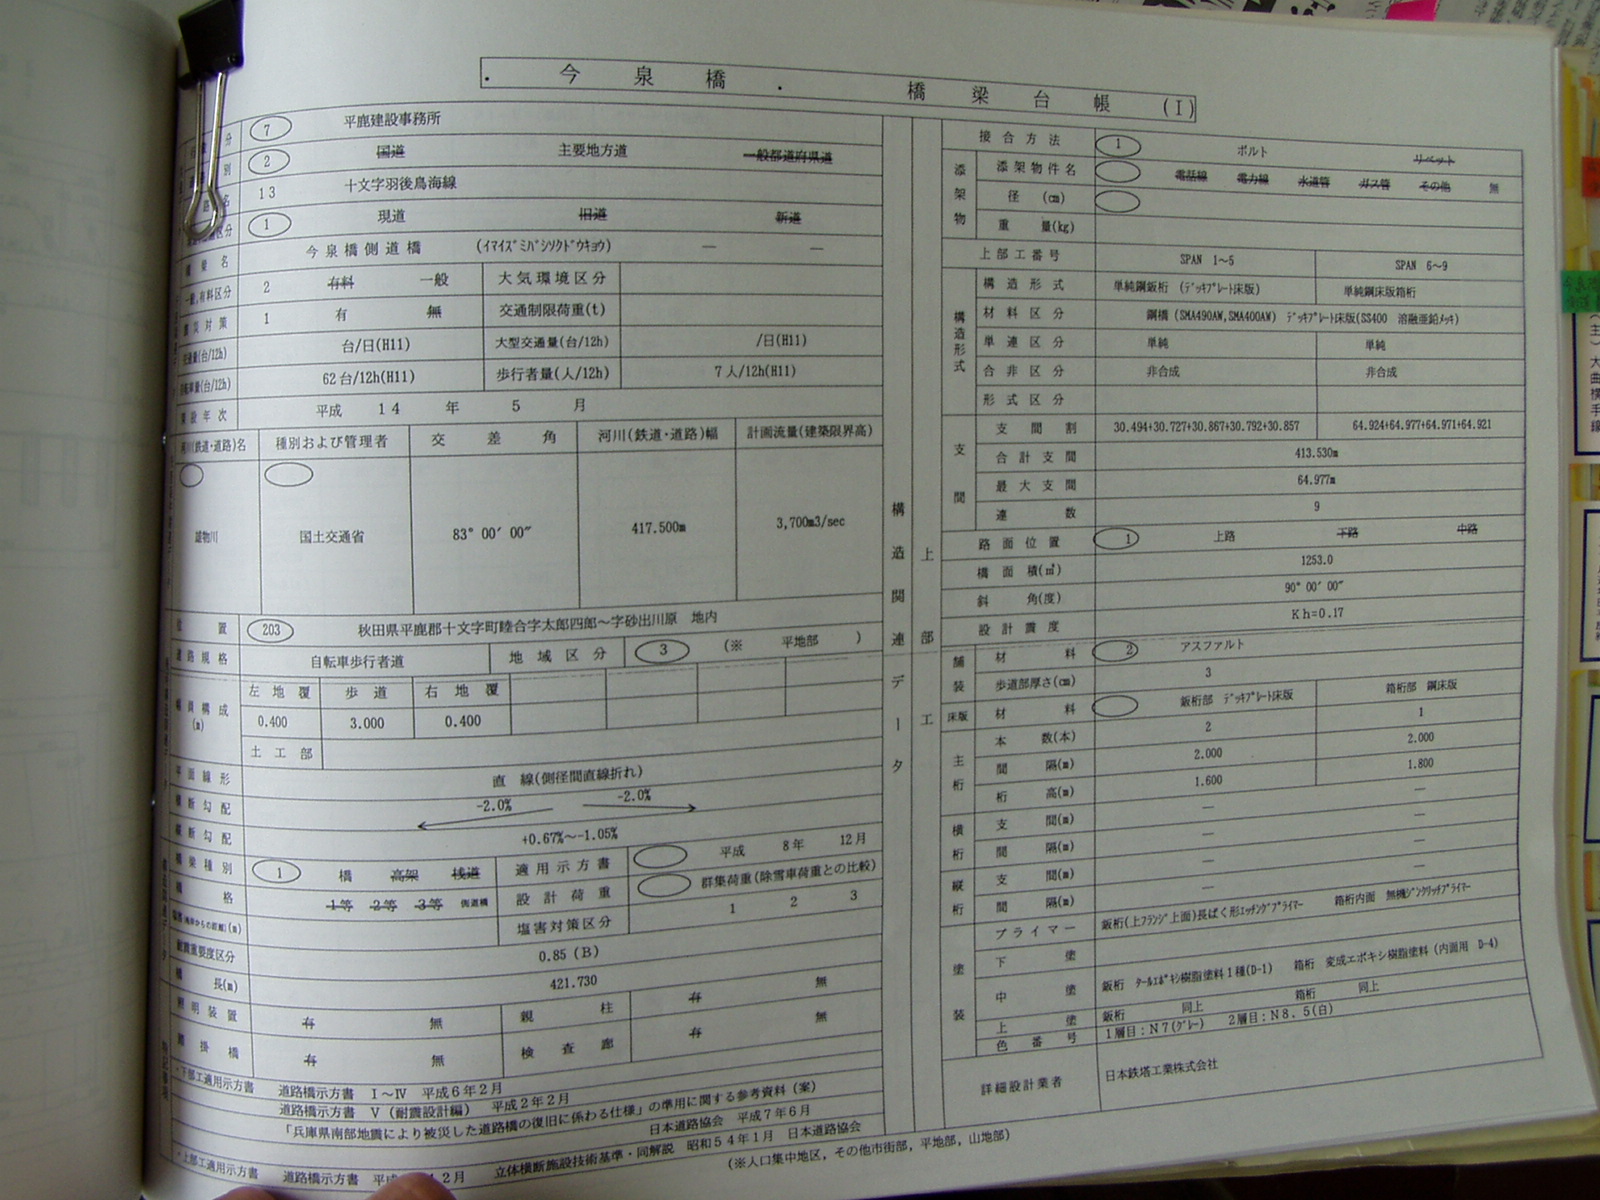 今泉橋　橋梁台帳 (Ⅰ)
7 平鹿建設事務所
2 国道 主要地方道 一般都道府県道
13 十文字羽後鳥海線
1 現道 旧道 新道
今泉橋側道橋 (ｲﾏｲｽﾞﾐﾊﾞｼｿｸﾄﾞｳｷｮｳ) ― ―
一般,有料区分 2 有料 一般 大気環境区分
震災対策 1 有 無 交通制限荷重(t)
台/日(H11) 大型交通量(台/12h) /日(H11)
62台/12h(H11) 歩行者量(人/12h) 7人/12h(H11)
平成 14 年 5 月
河川(鉄道・道路)名 種別および管理者 交差角 河川(鉄道・道路)幅 計画流量(建築限界高)
雄物川 国土交通省 83° 00′ 00″ 417.500m 3,700m3/sec
位置 203 秋田県平鹿郡十文字町睦合字太郎四郎～字砂出川原 地内
道路規格 自転車歩行者道 地域区分 3 (※ 平地部 )
幅員構成(m) 左地覆 歩道 右地覆
0.400 3.000 0.400
土工部
平面線形 直線(側径間直線折れ)
横断勾配 -2.0% -2.0%
縦断勾配 +0.67%～-1.05%
橋梁種別 1 橋 高架 桟道 適用示方書 平成 8年 12月
橋格 1等 2等 3等 側道橋 設計荷重 群集荷重(除雪車荷重との比較)
塩害対策区分 1 2 3
耐震重要度区分 0.85 (B)
橋長(m) 421.730
照明装置 有 無 親柱 有 無
添掛橋 有 無 検査廊 有 無
・下部工適用示方書 道路橋示方書 Ⅰ～Ⅳ 平成6年2月
道路橋示方書 Ⅴ (耐震設計編) 平成2年2月
「兵庫県南部地震により被災した道路橋の復旧に係わる仕様」の準用に関する参考資料(案)
日本道路協会 平成7年6月
立体横断施設技術基準・同解説 昭和54年1月 日本道路協会
・上部工適用示方書 道路橋示方書
(※人口集中地区，その他市街部，平地部，山地部)
構造関連データ
上部工
接合方法 1 ボルト リベット
添架物 添架物件名 電話線 電力線 水道管 ガス管 その他 無
径 (㎝)
重量(㎏)
上部工番号 SPAN 1～5 SPAN 6～9
構造形式 構造形式 単純鋼鈑桁 (ﾃﾞｯｷﾌﾟﾚｰﾄ床版) 単純鋼床版箱桁
材料区分 鋼橋 (SMA490AW,SMA400AW) ﾃﾞｯｷﾌﾟﾚｰﾄ床版(SS400 溶融亜鉛ﾒｯｷ)
単連区分 単純 単純
合非区分 非合成 非合成
形式区分
支間 支間割 30.494+30.727+30.867+30.792+30.857 64.924+64.977+64.971+64.921
合計支間 413.530m
最大支間 64.977m
連数 9
路面位置 1 上路 下路 中路
橋面積(㎡) 1253.0
斜角(度) 90° 00′ 00″
設計震度 Kh=0.17
舗装 材料 2 アスファルト
歩道部厚さ(㎝) 3
床版 材料 鈑桁部 ﾃﾞｯｷﾌﾟﾚｰﾄ床版 箱桁部 鋼床版
主桁 本数(本) 2 1
間隔(m) 2.000 2.000
桁高(m) 1.600 1.800
横桁 支間(m) ― ―
間隔(m) ― ―
縦桁 支間(m) ― ―
間隔(m) ― ―
塗装 プライマー 鈑桁(上ﾌﾗﾝｼﾞ上面)長ばく形ｴｯﾁﾝｸﾞﾌﾟﾗｲﾏｰ 箱桁内面 無機ｼﾞﾝｸﾘｯﾁﾌﾟﾗｲﾏｰ
下塗
中塗 鈑桁 ﾀｰﾙｴﾎﾟｷｼ樹脂塗料1種(D-1) 箱桁 変成エポキシ樹脂塗料(内面用 D-4)
上塗 鈑桁 同上 箱桁 同上
色番号 1層目：N7(ｸﾞﾚｰ) 2層目：N8.5(白)
詳細設計業者 日本鉄塔工業株式会社